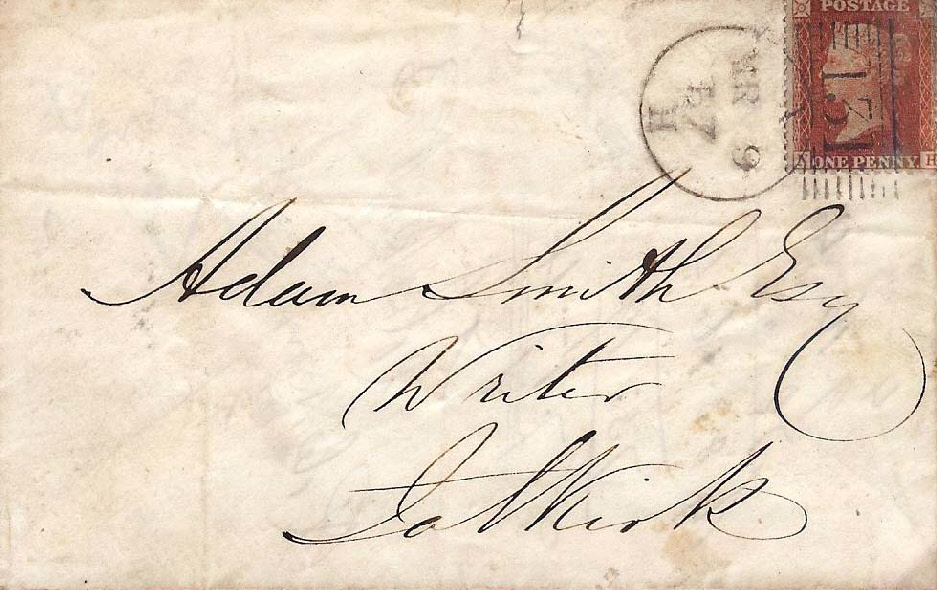 POSTAGE
131
ONE PENNY H
H
MR 9
Adam Smith Esq
Writer
Falkirk